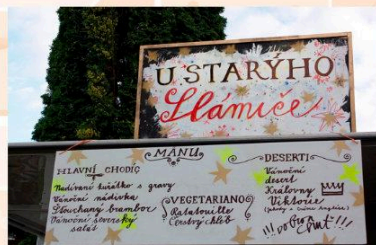 U STARÝHO
Slámiče
MANU
HLAVNÍ CHODIG
Nadívaní kuřátko s gravy
Vánoční nádivka
Šťouchaný brambor
Vánoční severský
salát
VEGETARIANO
Ratatouille
Čerstvý chléb
DESERTI
Vánoční
desert
Královny
Viktorie
pogron